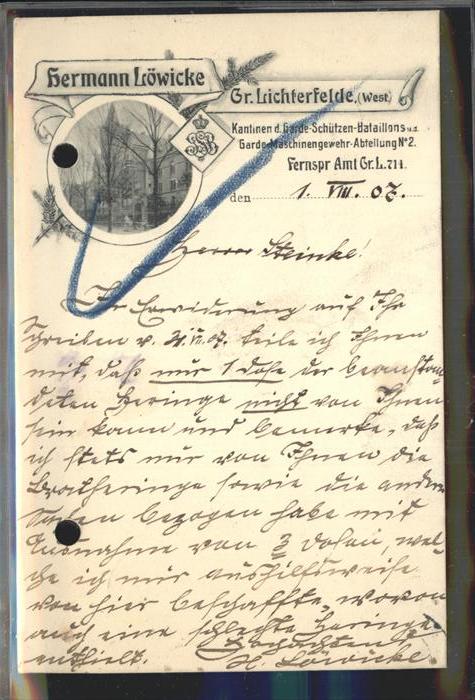 Hermann Löwicke
Gr. Lichterfelde, (West)
Kantinen d. Garde-Schützen-Bataillons u.d.
Garde-Maschinengewehr-Abteilung No 2.
Fernspr. Amt Gr. L. 711.
den 1. VIII. 07.
Herrn Steinke!
In Erwiderung auf Ihr
Schreiben v. 31.VII.07. teile ich Ihnen
mit, daß nur 1 Dose der beanstan
deten Heringe nicht von Ihnen
sein kann und bemerke, daß
ich stets nur von Ihnen die
Bratheringe sowie die andern
Sachen bezogen habe mit
Ausnahme von 3 Dosen, wel-
che ich mir aushilfsweise
von hier beschaffte, wovon
auch eine schlechte Heringe
enthielt.
Hochachtend
H. Löwicke.